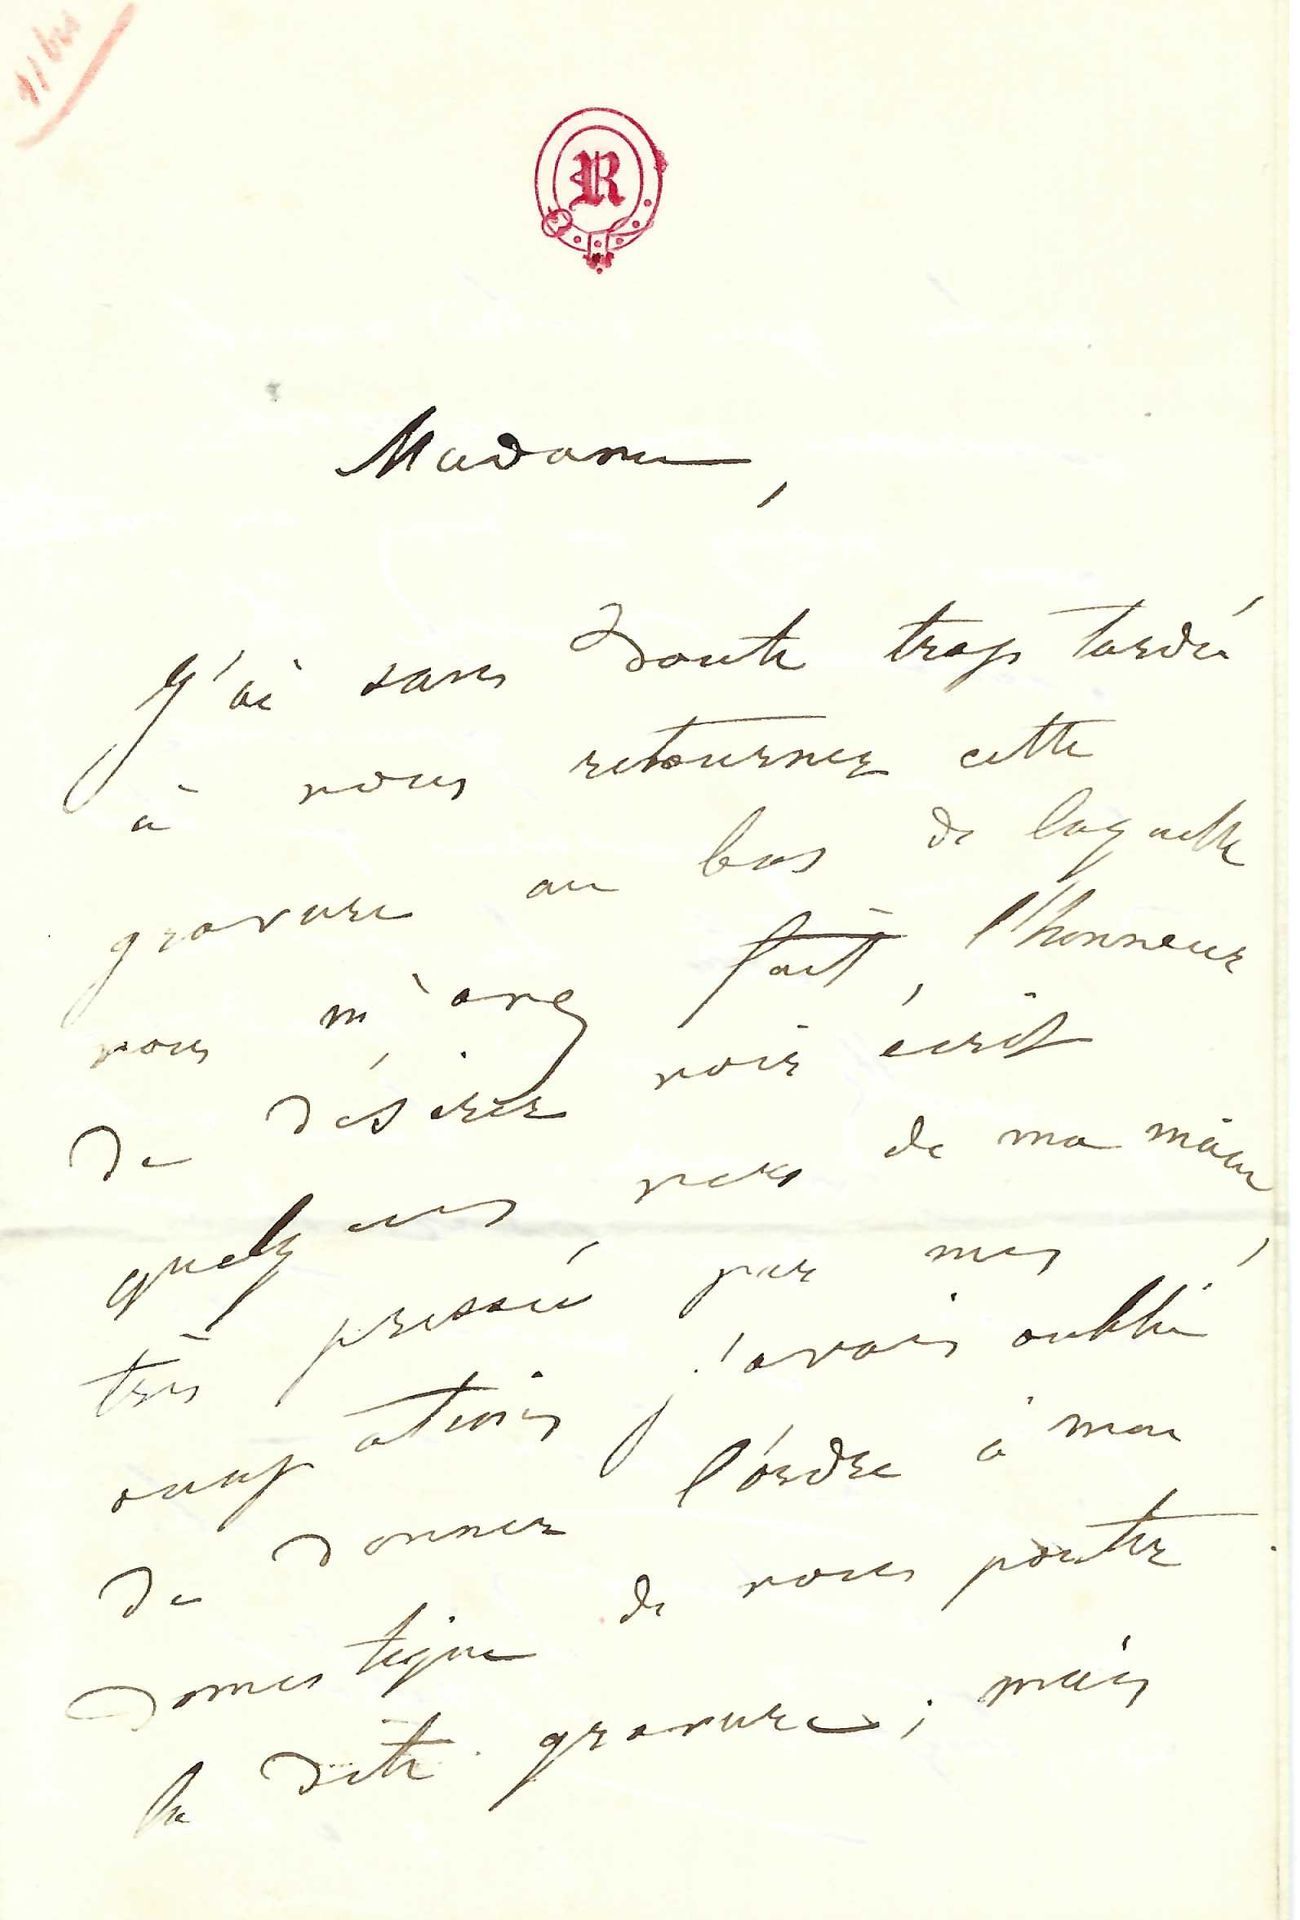 11 bis
R
Madame,
J'ai sans doute trop tardé
à vous retourner cette
gravure au bas de laquelle
vous m'avez fait l'honneur
de désirer voir écrit
quelques vers de ma main,
très pressé par mes
occupations j'avais oublié
de donner l'ordre à mon
domestique de vous porter
la dite gravure ; mais